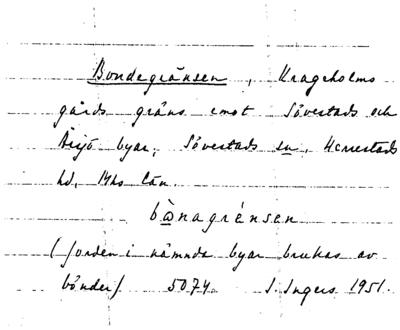 Bondegränsen, Krageholms
gårds gräns emot Sövestads och
Bisjö byar, Sövestads sn, Herrestads
hd, Mhs län.
bωnagrénsen
(jorden i nämnda byar brukas av
bönder). 5074. I. Ingers 1951.